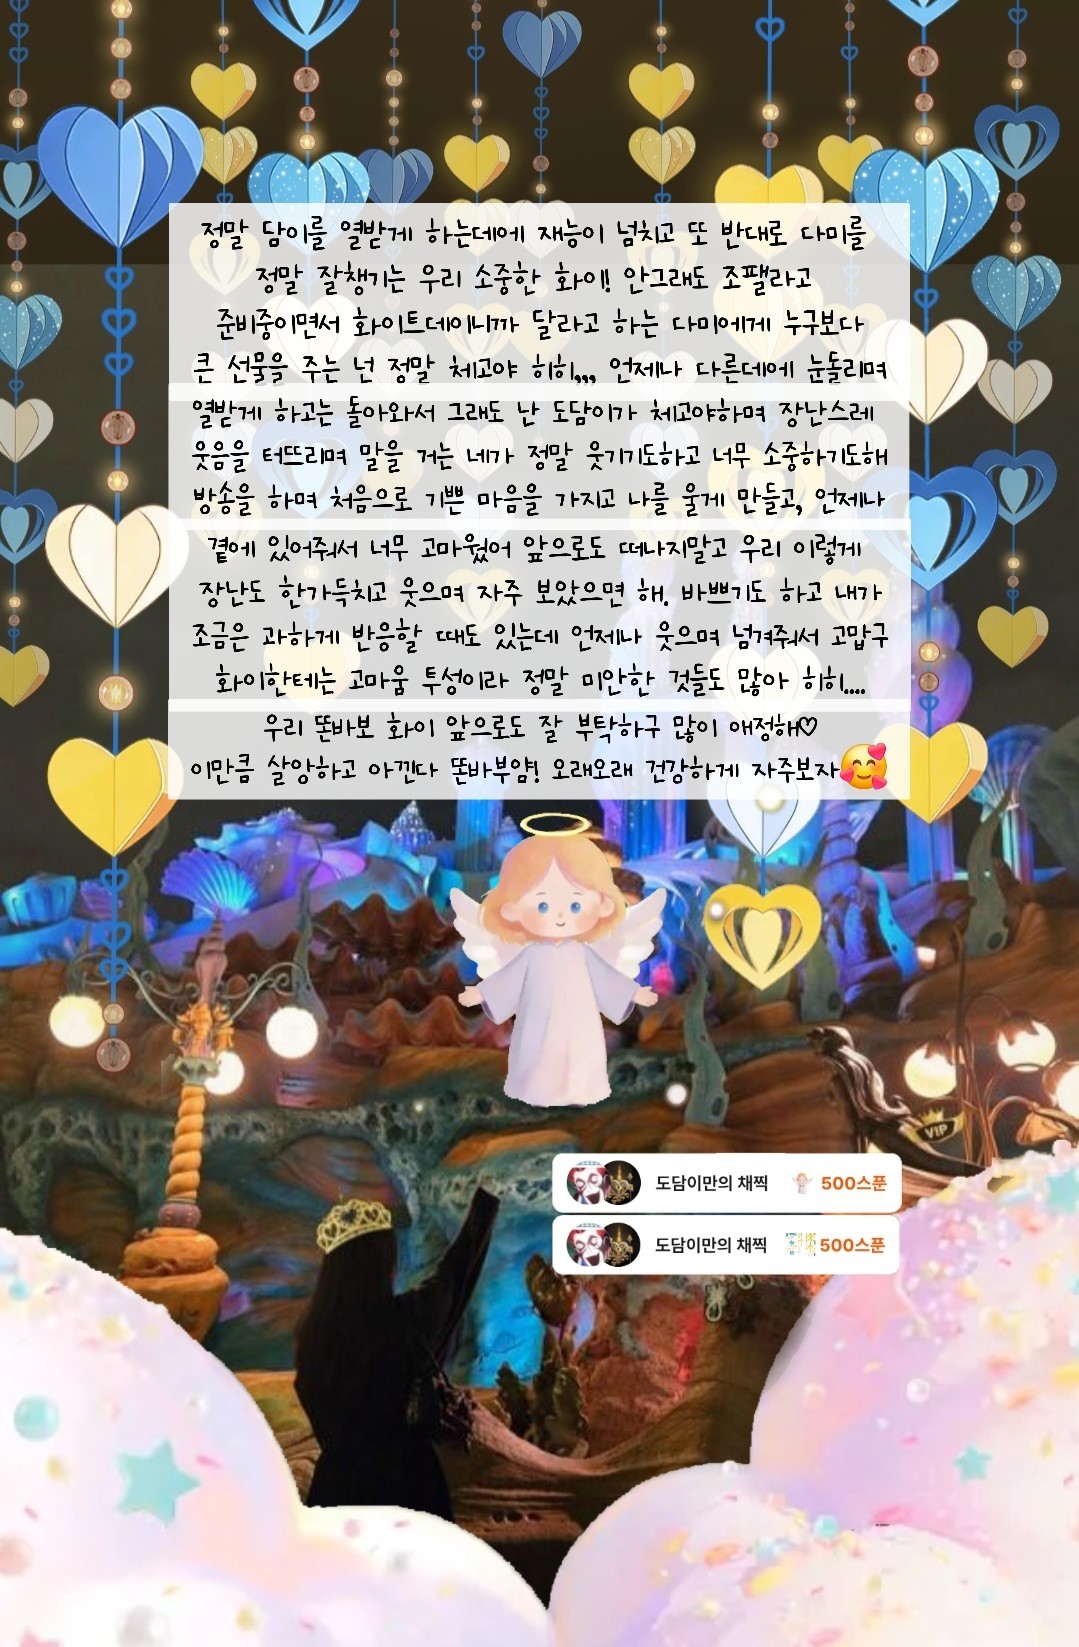 정말 담이를 열받게 하는데에 재능이 넘치고 또 반대로 다미를
정말 잘챙기는 우리 소중한 화이! 안그래도 조팰라고
준비중이면서 화이트데이니까 달라고 하는 다미에게 누구보다
큰 선물을 주는 넌 정말 체고야 히히,,, 언제나 다른데에 눈돌리며
열받게 하고는 돌아와서 그래도 난 도담이가 체고야하며 장난스레
웃음을 터뜨리며 말을 거는 네가 정말 웃기기도하고 너무 소중하기도해
방송을 하며 처음으로 기쁜 마음을 가지고 나를 울게 만들고, 언제나
곁에 있어줘서 너무 고마웠어 앞으로도 떠나지말고 우리 이렇게
장난도 한가득치고 웃으며 자주 보았으면 해. 바쁘기도 하고 내가
조금은 과하게 반응할 때도 있는데 언제나 웃으며 넘겨줘서 고맙구
화이한테는 고마움 투성이라 정말 미안한 것들도 많아 히히....
우리 똔바보 화이 앞으로도 잘 부탁하구 많이 애정해♡
이만큼 살앙하고 아낀다 똔바부얌! 오래오래 건강하게 자주보자🥰
VIP
도담이만의 채찍 500스푼
도담이만의 채찍 500스푼